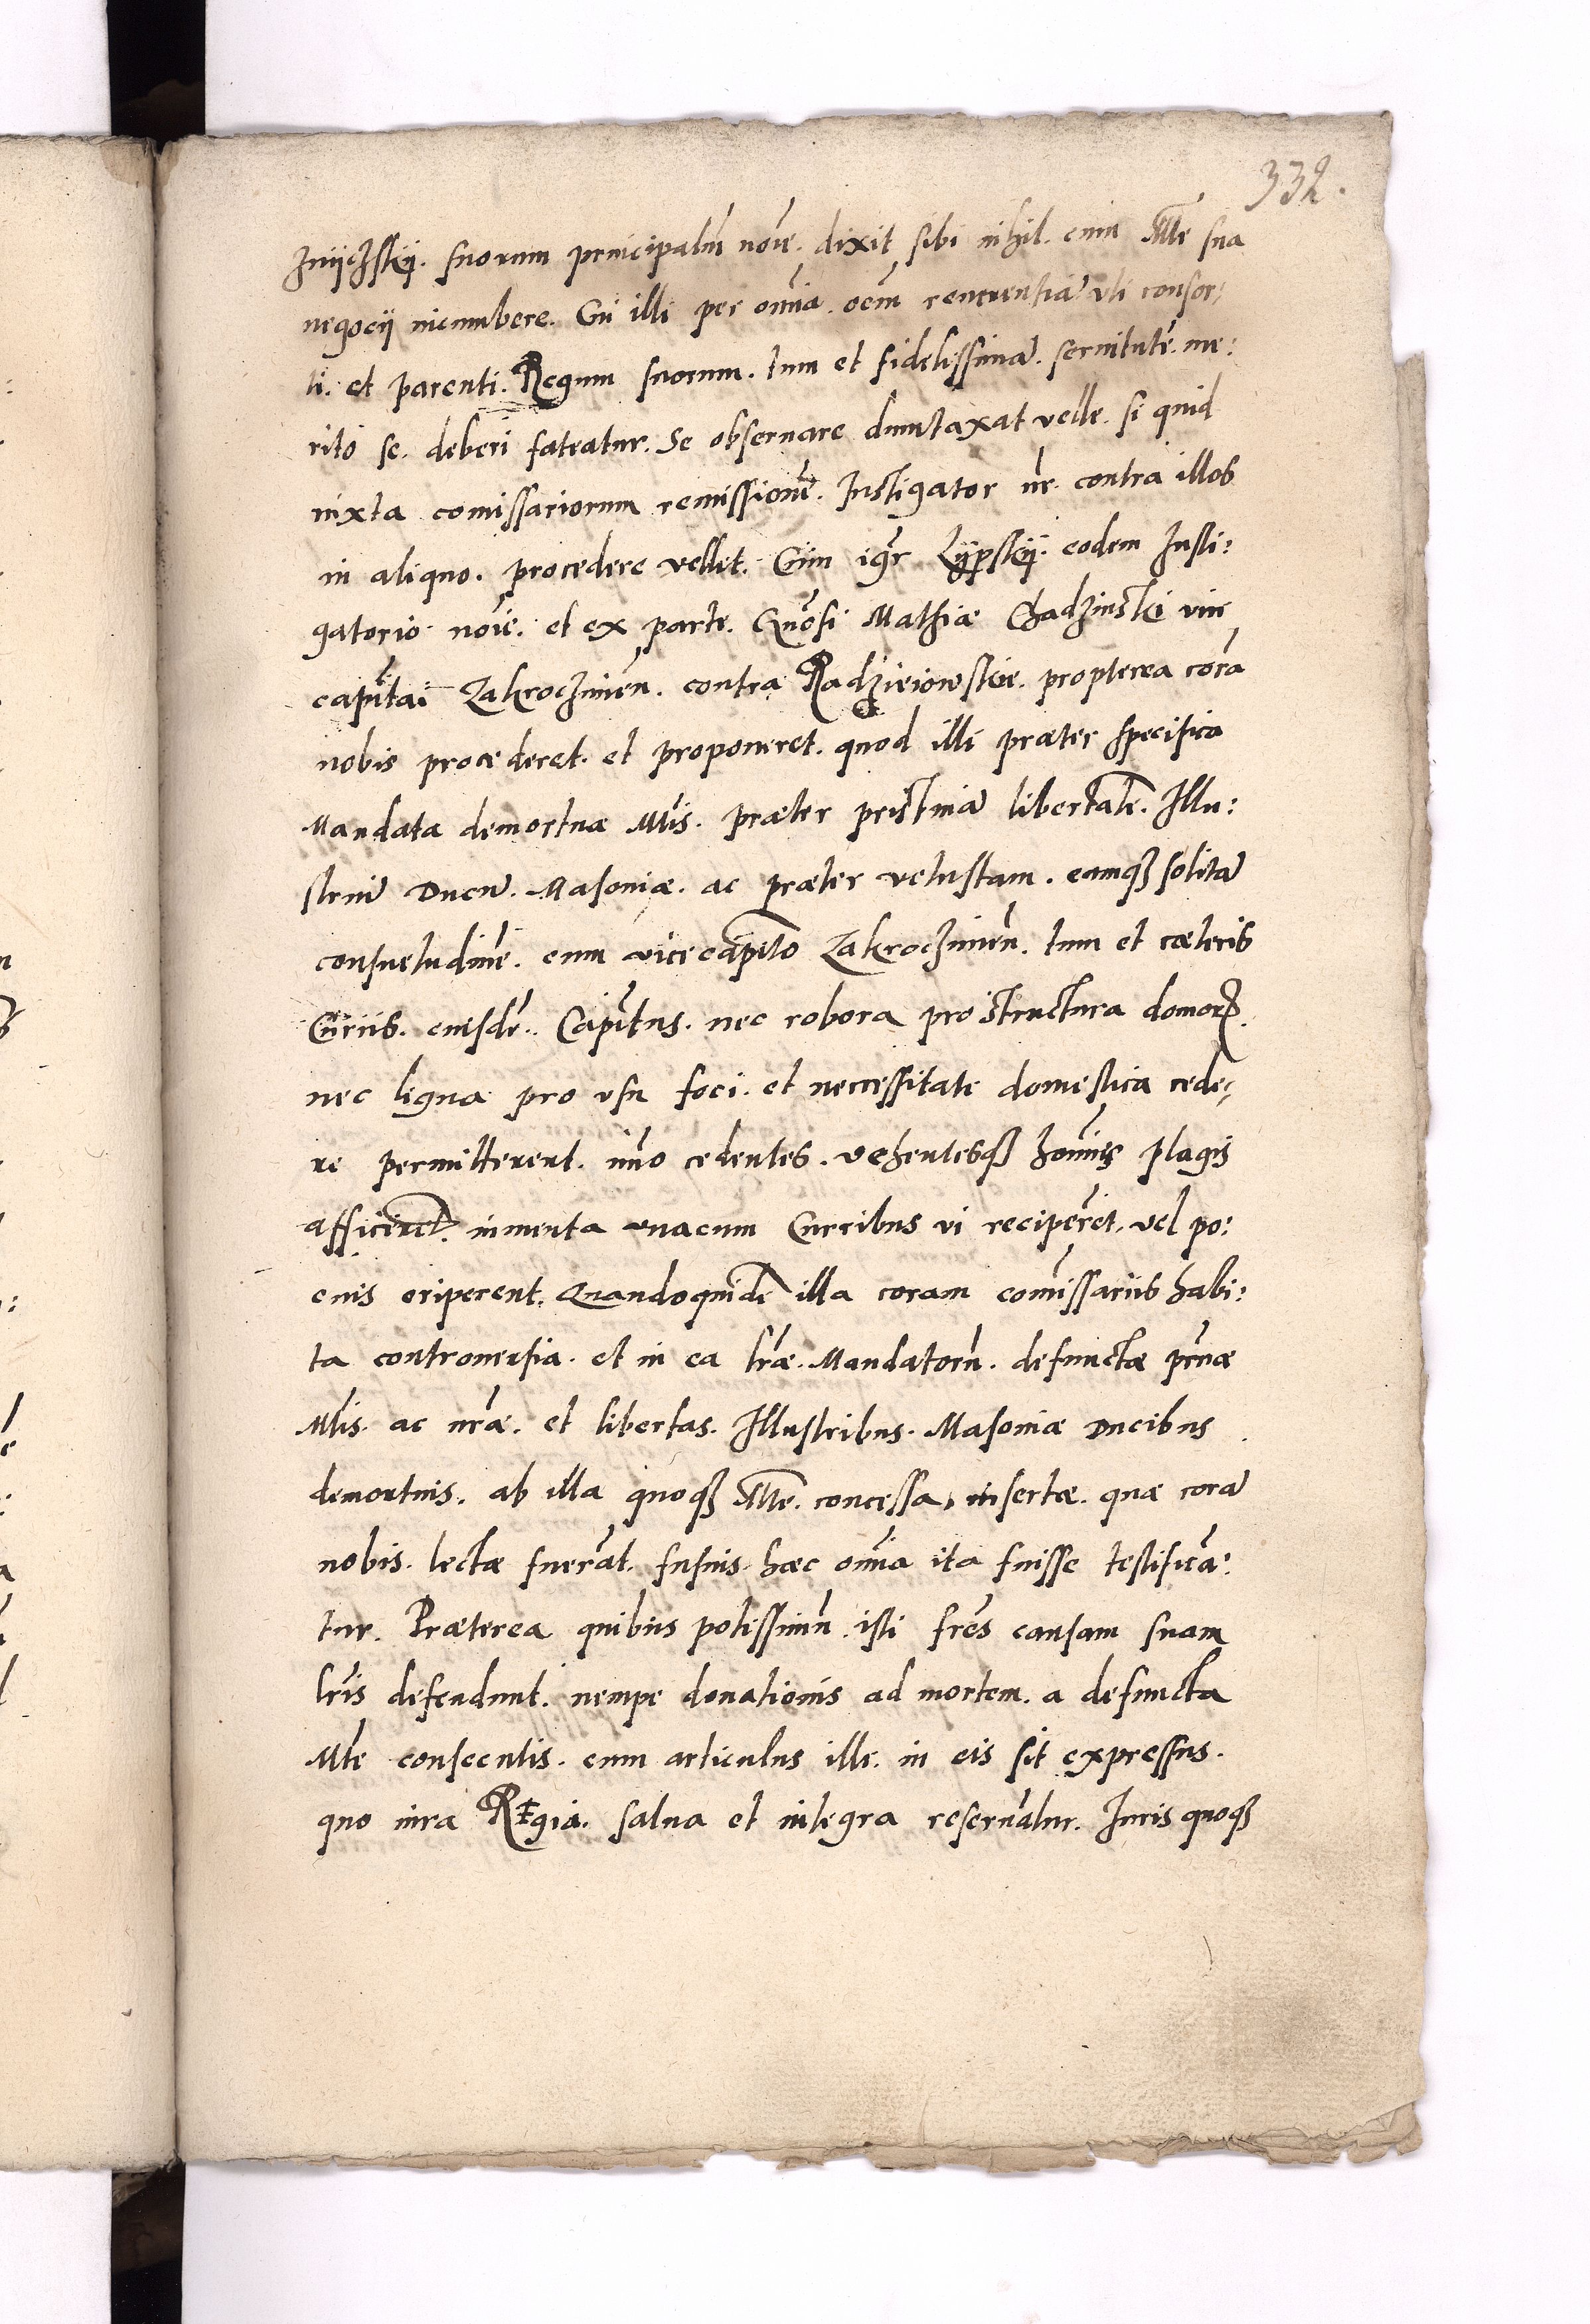 332.
Jniÿczskÿ. suorum principaliũ noĩe. dixit sibi nihil. cum Mte sua
negocÿ incumbere. Cũ illi per omnia. oẽm reuerentiã vti consor,
ti. et parenti. Regum suorum. tum et fidelissimã. seruitutẽ. me:
rito se. deberi fateatur. Se obseruare duntaxat velle. si quid
iuxta comissariorum remissionẽ. Instigator nr̃. contra illos
in aliquo. procedere vellet. Cum igr̃ Lÿpskÿ. eodem Insti:
gatorio noĩe. et ex parte. Gñosi Mathiæ Chadzinski vice
capitãi Zakroczimeñ. contra Radzieiowskie. propterea corã
nobis procederet. et proponeret. quod illi præter specifica
Mandata demortuæ Mtis. præter pristinã libertatẽ. Illu:
striũ Ducũ. Masoniæ. ac præter vetustam. eamqꝫ solitã
consuetudinẽ. eum vicecapitõ Zakroczimeñ. tum et cæteris
Curiis. eiusdẽ. Capitus. nec robora pro structura domorꝝ.
nec ligna pro vsu foci. et neccessitate domestica cede,
re permitterent. imo cedentes. vehentesqꝫ homines plagis
afficerẽt. iumenta vnacum Curribus vi reciperẽt. vel po:
enis eriperent. Quandoquidẽ illa coram comissariis habi:
ta controuersia. et in ea lr̃æ. Mandatorũ. defunctæ prñæ
Mtis. ac nr̃æ. et libertas. Illustribus. Masoniæ Ducibus
demortuis. ab illa quoqꝫ Mte. concessa, insertæ. quæ corã
nobis. lectæ fuerãt. fusius. hæc omnia ita fuisse testificã:
tur. Præterea quibus potissimũ isti fres causam suam
lr̃is defendunt. nempe donationis ad mortem. a defuncta
Mte consecutis. cum articulus ille. in eis sit expressus.
quo iura Regia. salua et integra reseruãtur. Iuris quoqꝫ